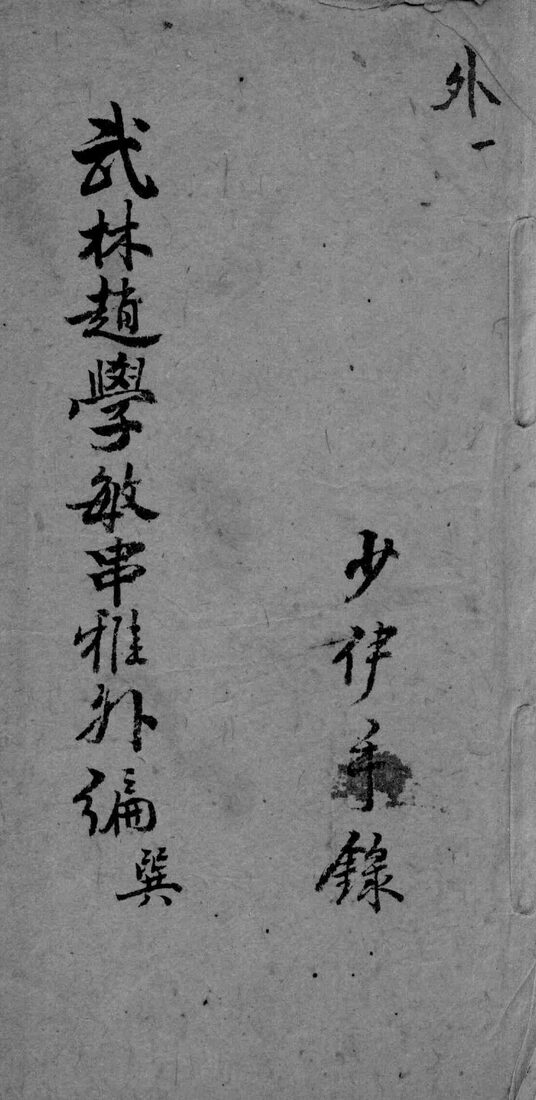 外一
少伊手錄
武林趙學敏串雅外編巽